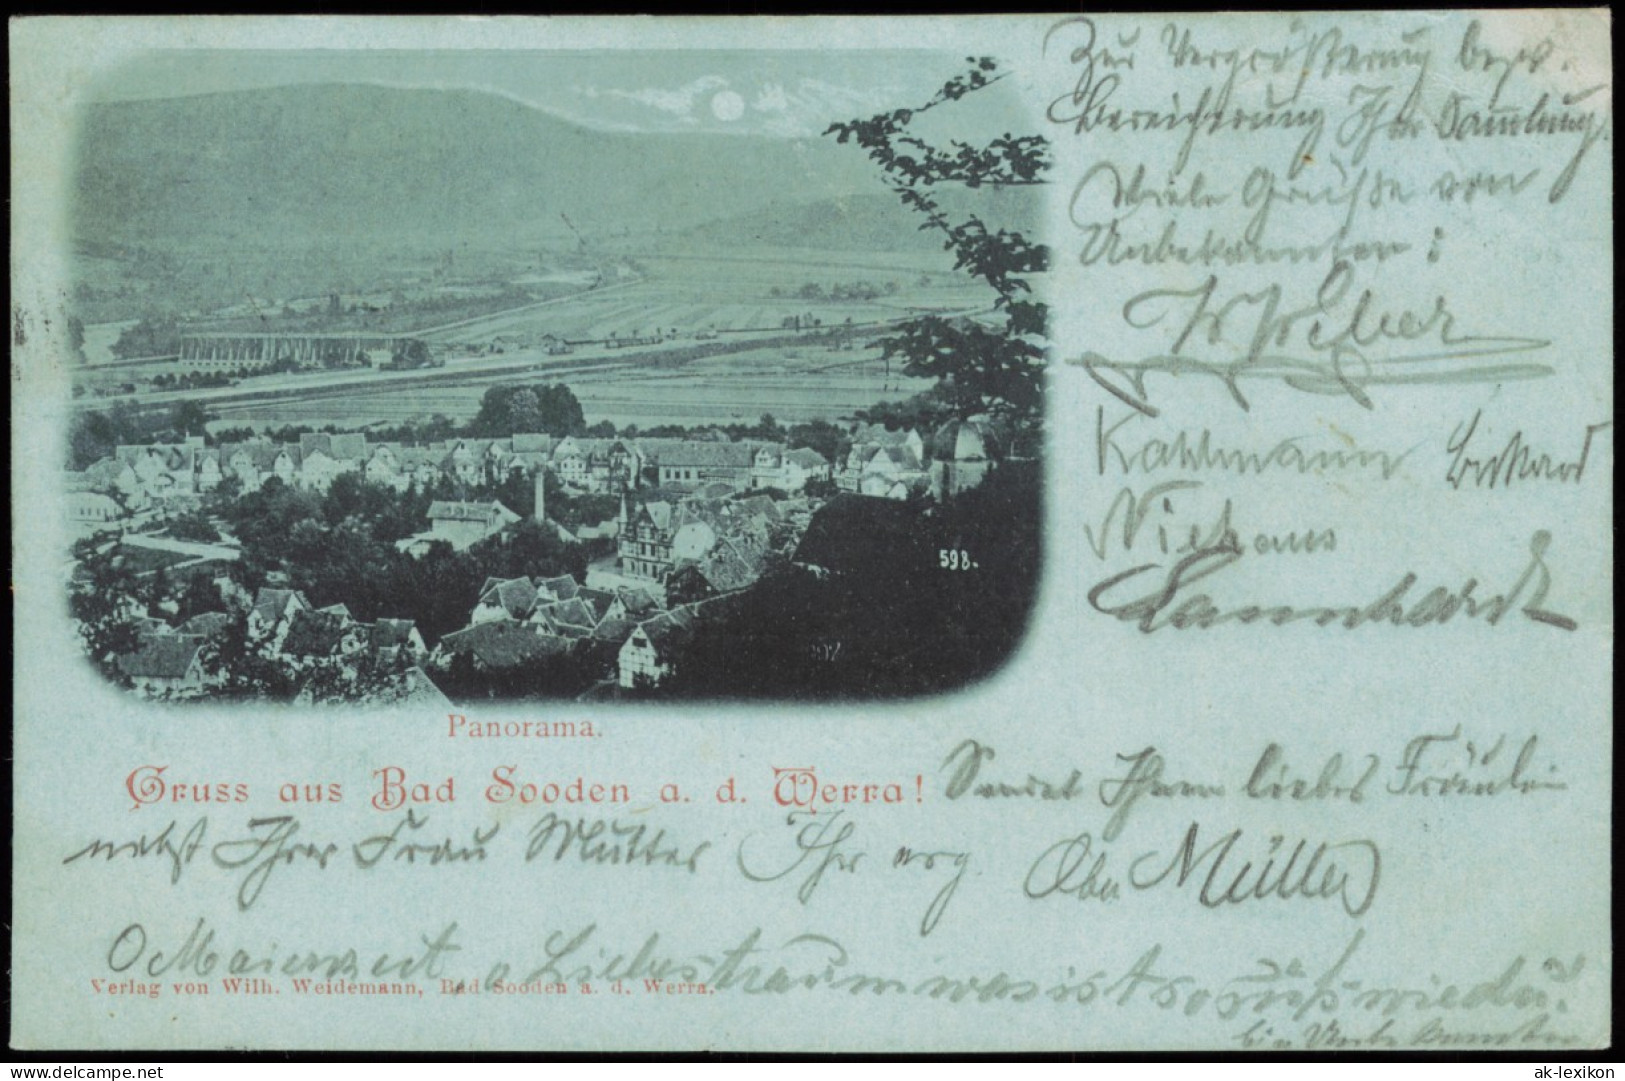 Zur Vergrößerung bezw.
Bereicherung Ihrer Sammlung.
Viele Grüße von
Unbekannten:
Weber
Kahlmann
Niehaus
Lannhardt
598.
Panorama.
Gruss aus Bad Sooden a. d. Werra!
Sendet Ihnen liebes Fräulein
nebst Ihrer Frau Mutter Ihr erg. Müller
O Maienzeit o Liebestraum was ist so süß wie du!
Verlag von Wilh. Weidemann, Bad Sooden a. d. Werra.
ak-lexikon.de
delcampe.net